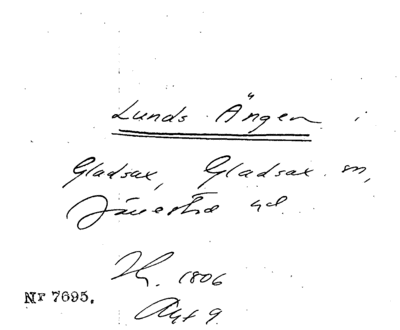 Lunds Ängen i
Gladsax, Gladsax sn,
Järrestad hd
Th. 1806
Akt 9
Nr 7695.